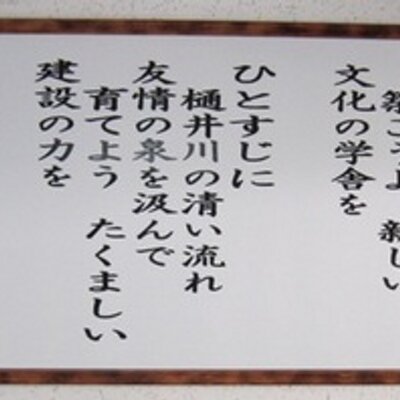 築こうよ 新しい
文化の学舎を
ひとすじに
樋井川の清い流れ
友情の泉を汲んで
育てよう たくましい
建設の力を